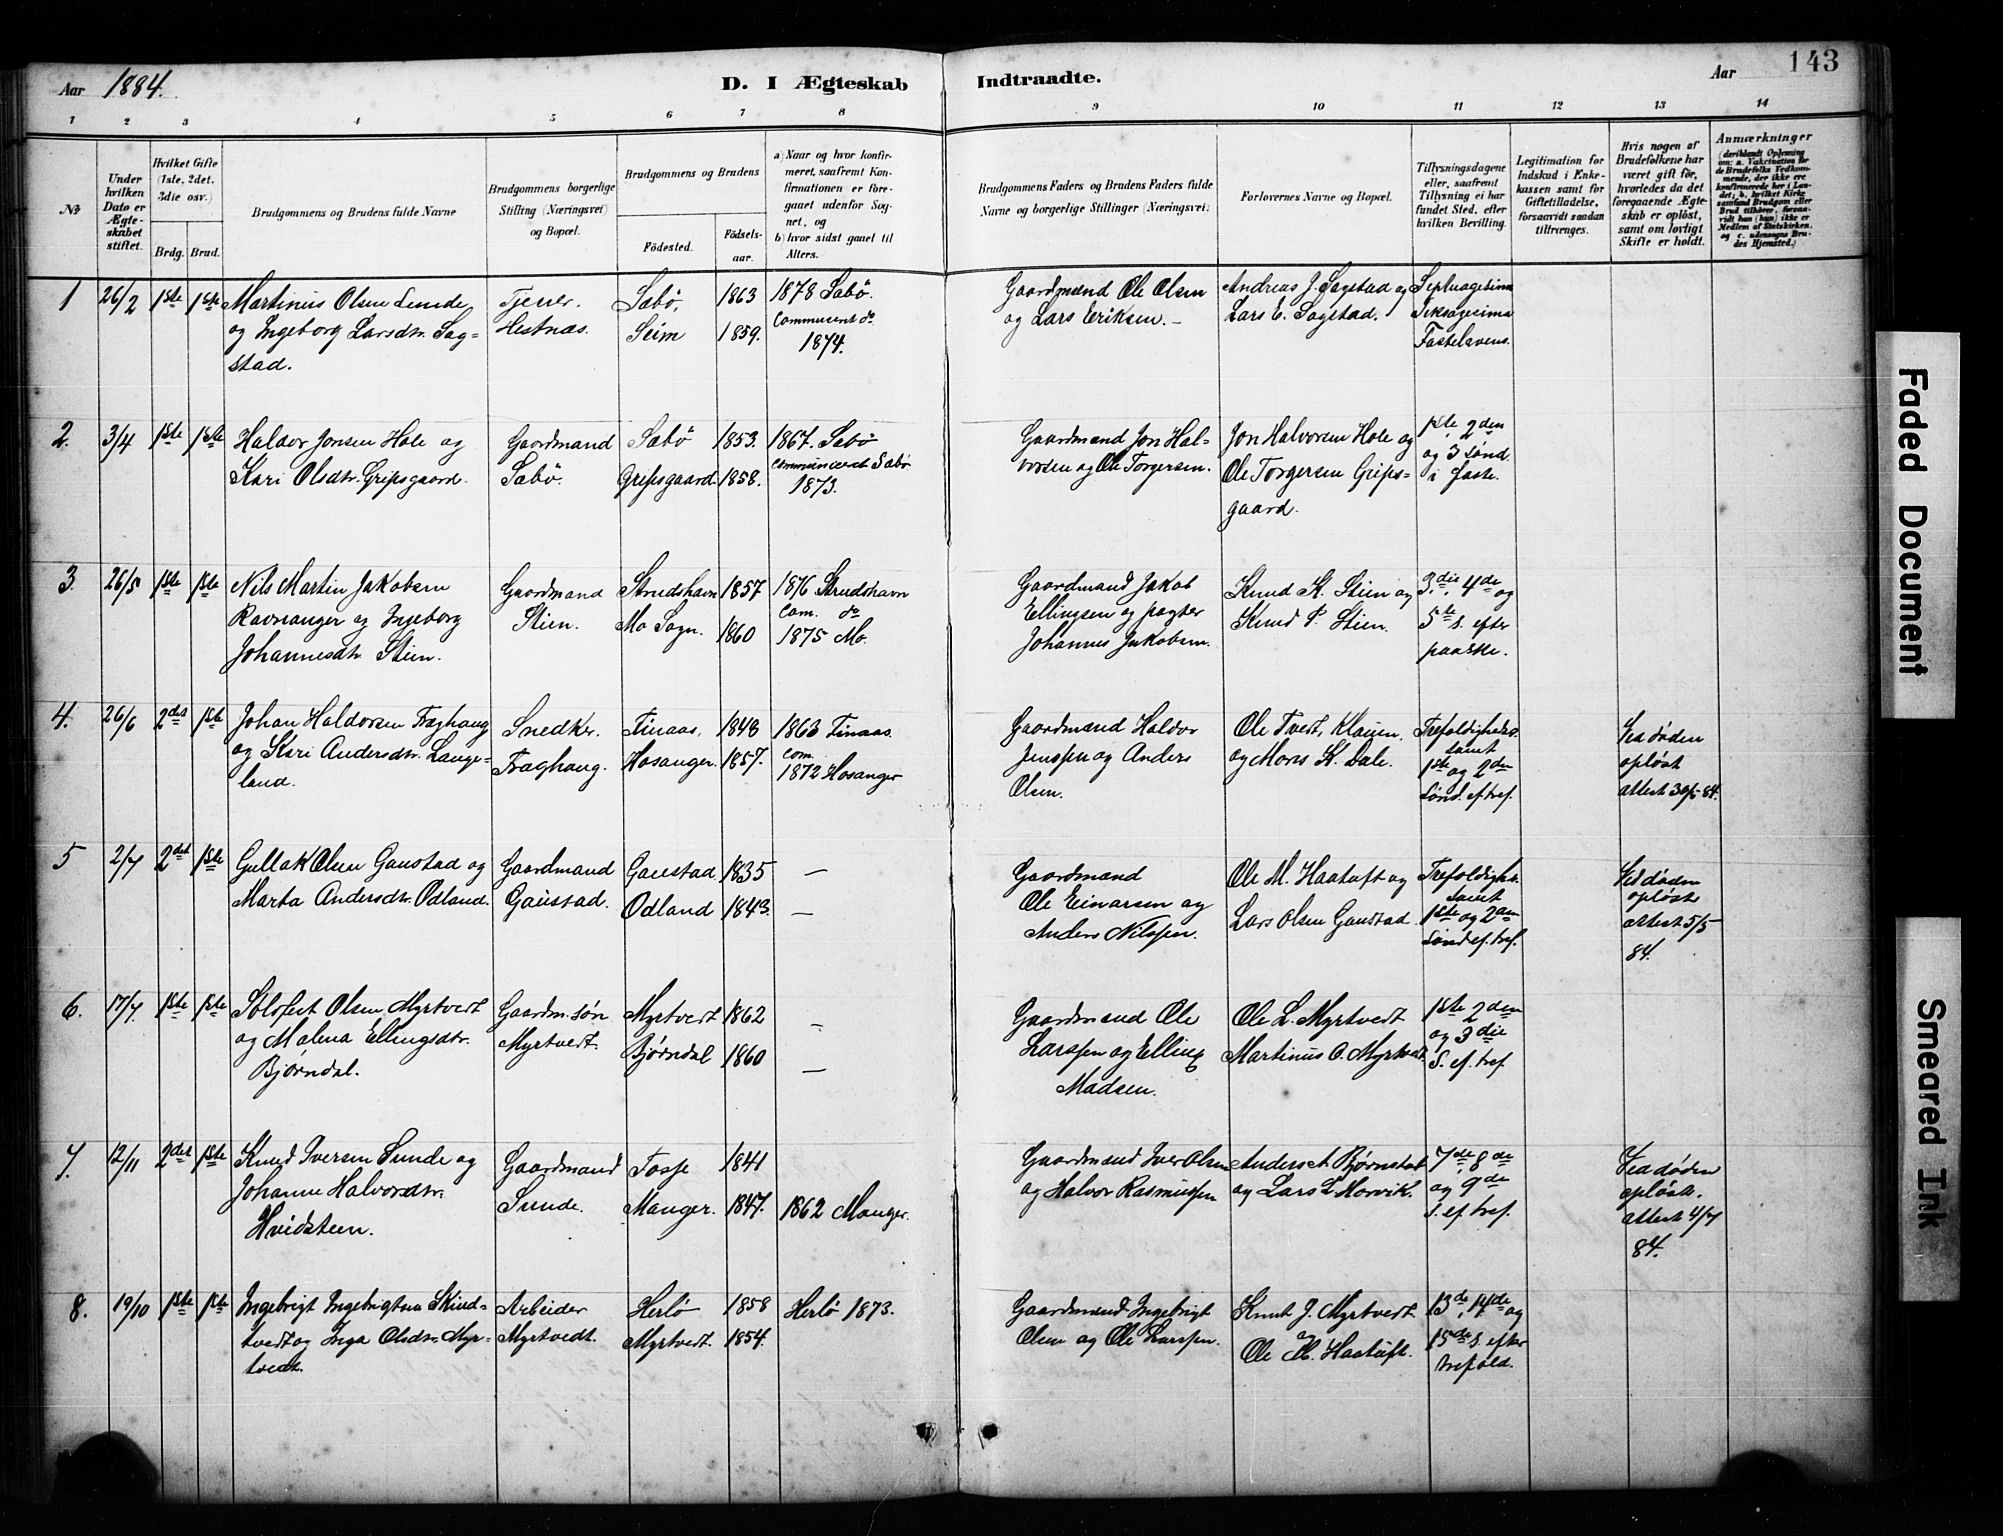 Aar 1884. D. I Ægteskab Indtraadte. Aar 143
1 2 3 4 5 6 7 8 9 10 11 12 13 14
№
Under hvilken Dato er Ægteskabet stiftet.
Hvilket Gifte (1ste, 2det, 3die osv.)
Brdg. Brud.
Brudgommens og Brudens fulde Navne
Brudgommens borgerlige Stilling (Næringsvei) og Bopæl.
Brudgommens og Brudens
Födested.
Födselsaar.
a) Naar og hvor konfirmeret, saafremt Konfirmationen er foregaaet udenfor Sognet, og
b) hvor sidst gaaet til Alters.
Brudgommens Faders og Brudens Faders fulde Navne og borgerlige Stillinger (Næringsvei)
Forlovernes Navne og Bopæl.
Tillysningsdagene eller, saafremt Tillysning ei har fundet Sted, efter hvilken Bevilling.
Legitimation for Indskud i Enkekassen samt for Giftetilladelse, forsaavidt saadan tiltrænges.
Hvis nogen af Brudefolkene har været gift för, hvorledes da det foregaaende Ægteskab er oplöst, samt om lovligt Skifte er holdt.
Anmærkninger
(deriblandt Oplysning om: a. Vakcination for de Brudefolks Vedkommende, der ikke ere konfirmerede her i Landet; b. hvilket Kirkesamfund Brudgom eller Brud tilhörer, forsaavidt han (hun) ikke er Medlem af Statskirken, og c. udensogns Brudes Hjemsted.)
1 26/2 1ste 1ste
Martinus Olsen
og Ingeborg Larsdtr. Sag-
stad.
Tjener.
Hestnæs.
Sæbö, 1863
Seim 1859.
1878 Sæbö.
Communent do
1874.
Gaardmænd Ole Olsen
og Lars Eriksen. —
Andreas J. Sagstad og
Lars E. Sagstad.
Septuagesima
Seksagesima
Fastelavens.
2. 3/4 1ste 1ste
Haldor Jonsen Hole og
Kari Olsdtr. Gripsgaard.
Gaardmand
Sæbö.
Sæbö 1853.
Gripsgaard. 1858.
1867. Sæbö
communiceret Sæbö
1873.
Gaardmænd Jon Hal-
vorsen og Ole Torgersen.
Jon Halvorsen Hole og
Ole Torgersen Grips-
gaard.
1ste, 2den
og 3 Sönd.
i faste.
3. 26/5 1ste 1ste
Nils Martin Jakobsen
Ravnanger og Ingeborg
Johannesdtr. Stien.
Gaardmand
Stien.
Strudshavn 1857
Mo Sogn. 1860
1876 Strudshavn
Com. do
1875 Mo.
Gaardmand Jakob
Ellingsen og pagter
Johannes Jakobsen.
Knud K. Stien og
Knud P. Stien.
3die, 4de og
5te s. efter
paaske.
4. 26/6 2det 1ste
Johan Haldorsen Træghaug
og Kari Andersdtr. Lange-
land.
Snedker.
Træghaug.
Finaas, 1848
Hosanger. 1857.
1863 Finaas.
com.
1872 Hosanger
Gaardmænd Haldor
Jenssen og Anders
Olsen.
Ole Tvedt, Klauen,
og Mons K. Dale.
Trefoldigheds.
samt
1ste og 2den
Sönd. ef. tref.
Ved döden
oplöst
attest 30/5 84.
5 2/7 2det 1ste
Gullak Olsen Gaustad og
Marta Andersdtr. Odland.
Gaardmand
Gaustad.
Gaustad 1835 —
Odland 1843. —
Gaardmænd
Ole Einarsen og
Anders Nilssen.
Ole M. Haatuft og
Lars Olsen Gaustad.
Trefoldighs.
samt
1ste og 2den
Sönd ef. tref.
Ved döden
oplöst
attest 5/5
84.
6. 17/7. 1ste 1ste
Stolsfest Olsen Myrtvedt
og Malena Ellingsdtr.
Bjørndal.
Gaardm. søn
Myrtvedt.
Myrtvedt 1862 —
Bjørndal 1860 —
Gaardmænd Ole
Larssen og Elling
Madsen.
Ole L. Myrtvedt
Martinus O. Myrtvedt
1ste 2den
og 3die
S. ef. tref.
7. 12/11 2det 1ste
Knud Iversen Sunde og
Johanne Halvorsdtr.
Hvidsteen.
Gaardmand
Sunde.
Fosse 1841
Manger. 1847.
1862 Manger.
Gaardmænd Iver Olsen
og Halvor Rasmussen
Anders A. Bjørnstad
og Lars L. Horvik.
7de, 8de
og 9de
S. ef. tref.
Ved døden
opløst.
attest 4/7
84.
8. 19/10 1ste 1ste
Ingebrigt Ingebrigtsen Skind-
tvedt og Inga Olsdtr. Myr-
tvedt.
Arbeider
Myrtvedt.
Herlö 1858
Myrtvedt. 1854.
Herlö 1873.
Gaardmænd Ingebrigt
Olsen og Ole Larssen.
Knut J. Myrtvedt.
og
Ole M. Haatuft.
13de, 14de og
15de s. efter
trefold.
Faded Document
Smeared Ink